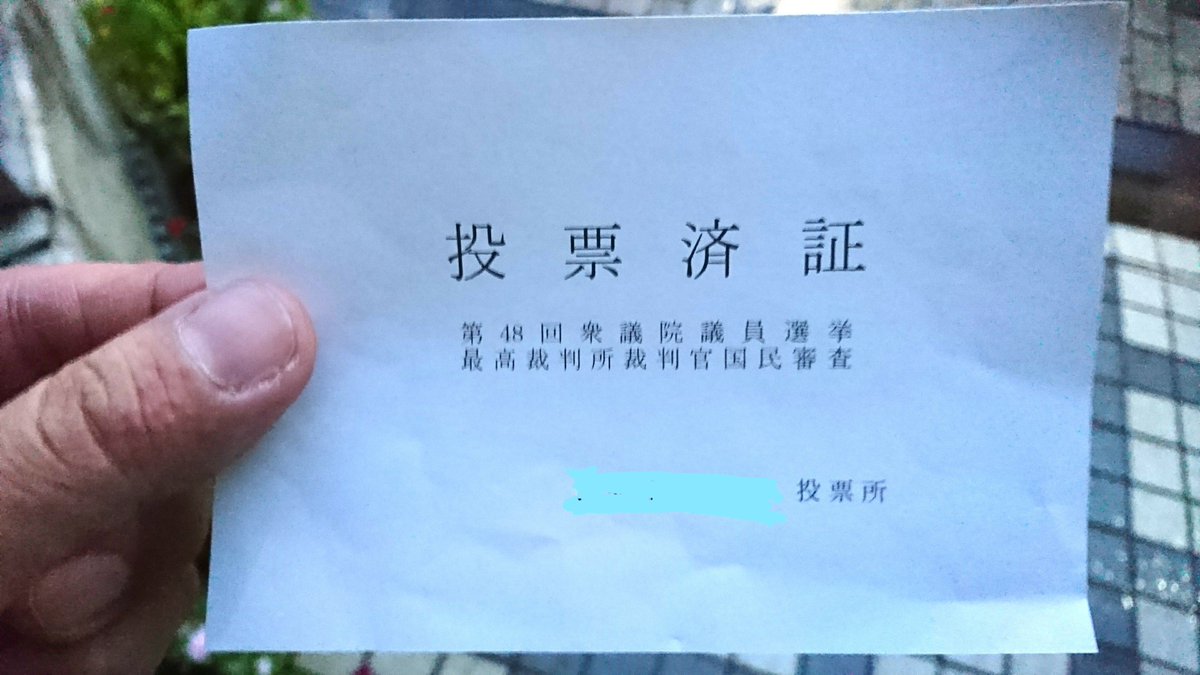 投票済証
第48回衆議院議員選挙
最高裁判所裁判官国民審査
投票所